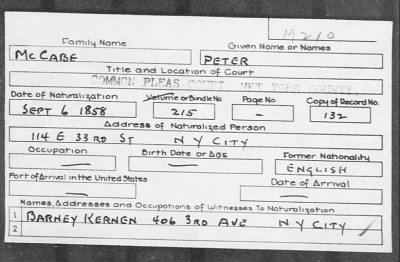 M210
Family Name Given Name or Names
McCABE PETER
Title and Location of Court
COMMON PLEAS COURT, NEW YORK COUNTY.
Date of Naturalization Volume or Bundle No. Page No. Copy of Record No.
SEPT 6 1858 215 — 132
Address of Naturalized Person
114 E 33RD ST N Y CITY
Occupation Birth Date or Age Former Nationality
— — ENGLISH
Port of Arrival in the United States Date of Arrival
— —
Names, Addresses and Occupations of Witnesses To Naturalization
1 BARNEY KERNEN 406 3RD AVE N Y CITY
2